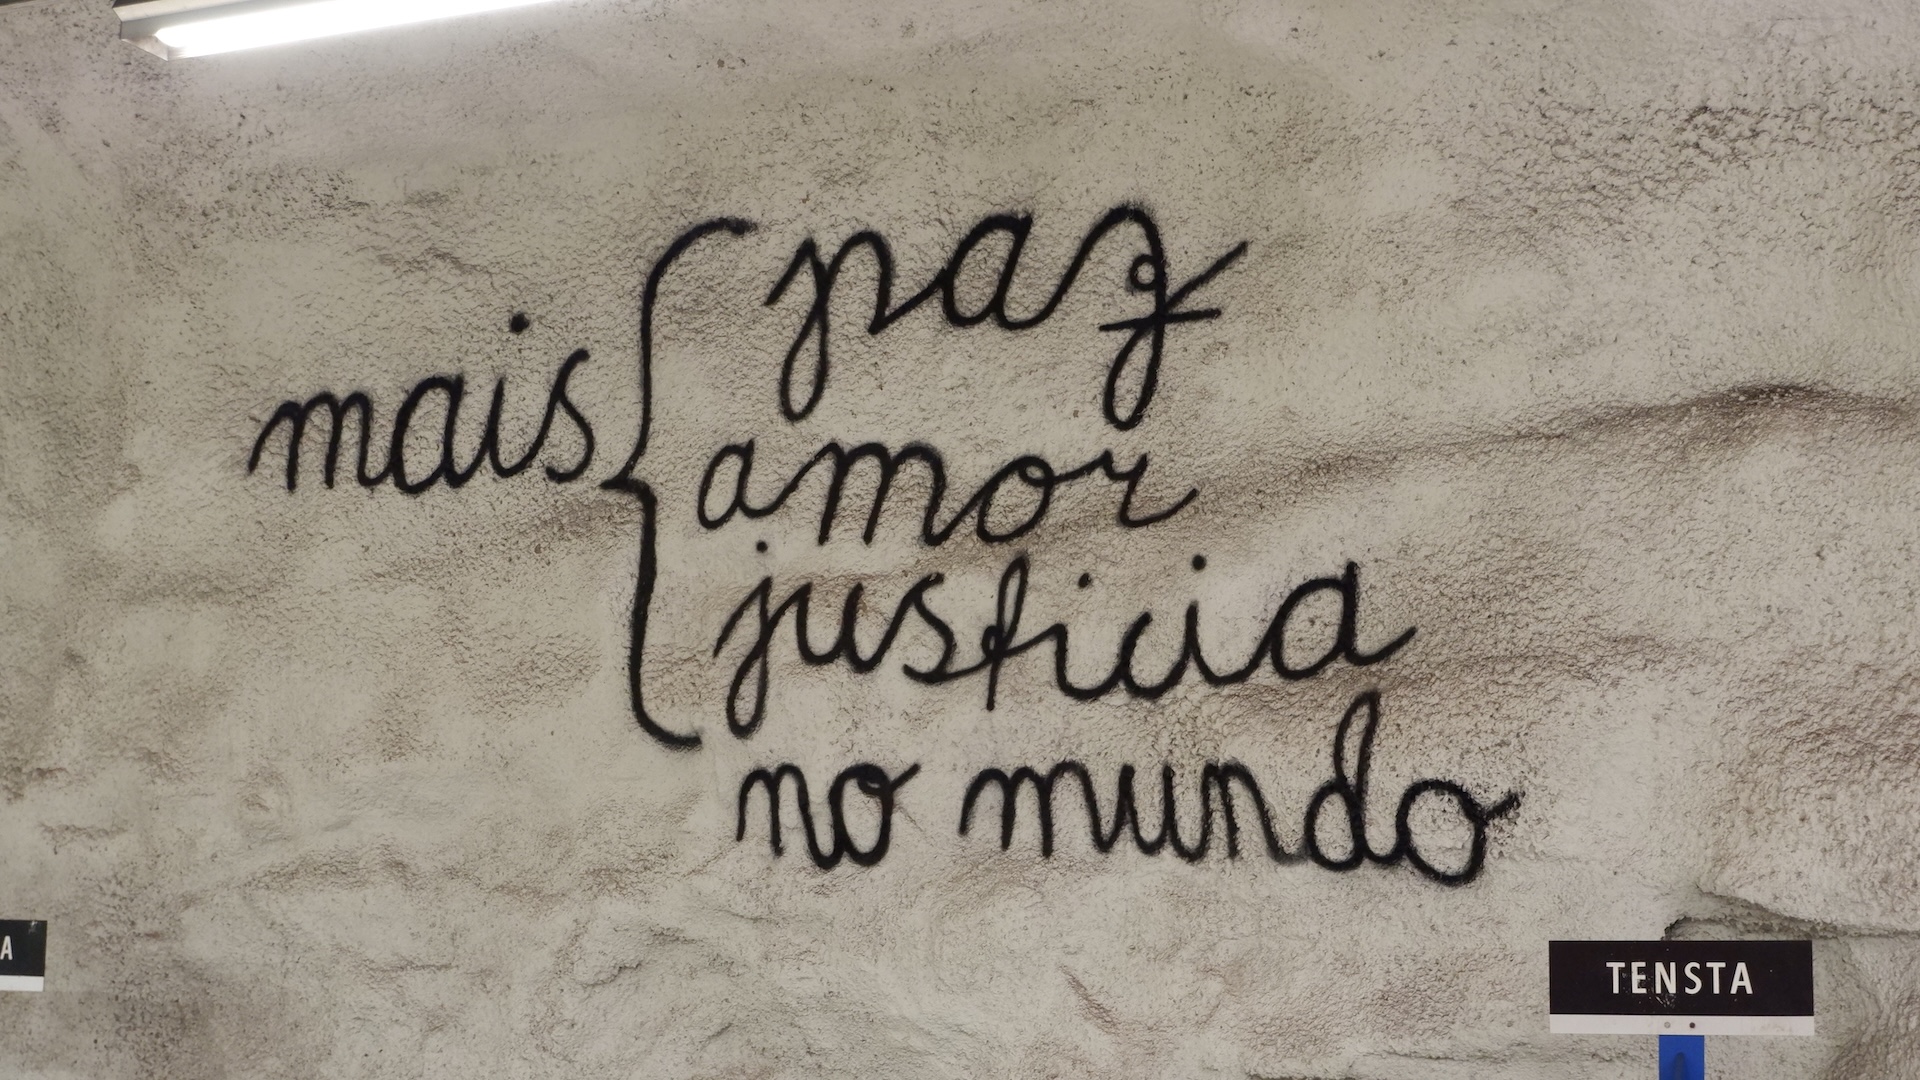 mais { paz
amor
justicia
no mundo
A
TENSTA